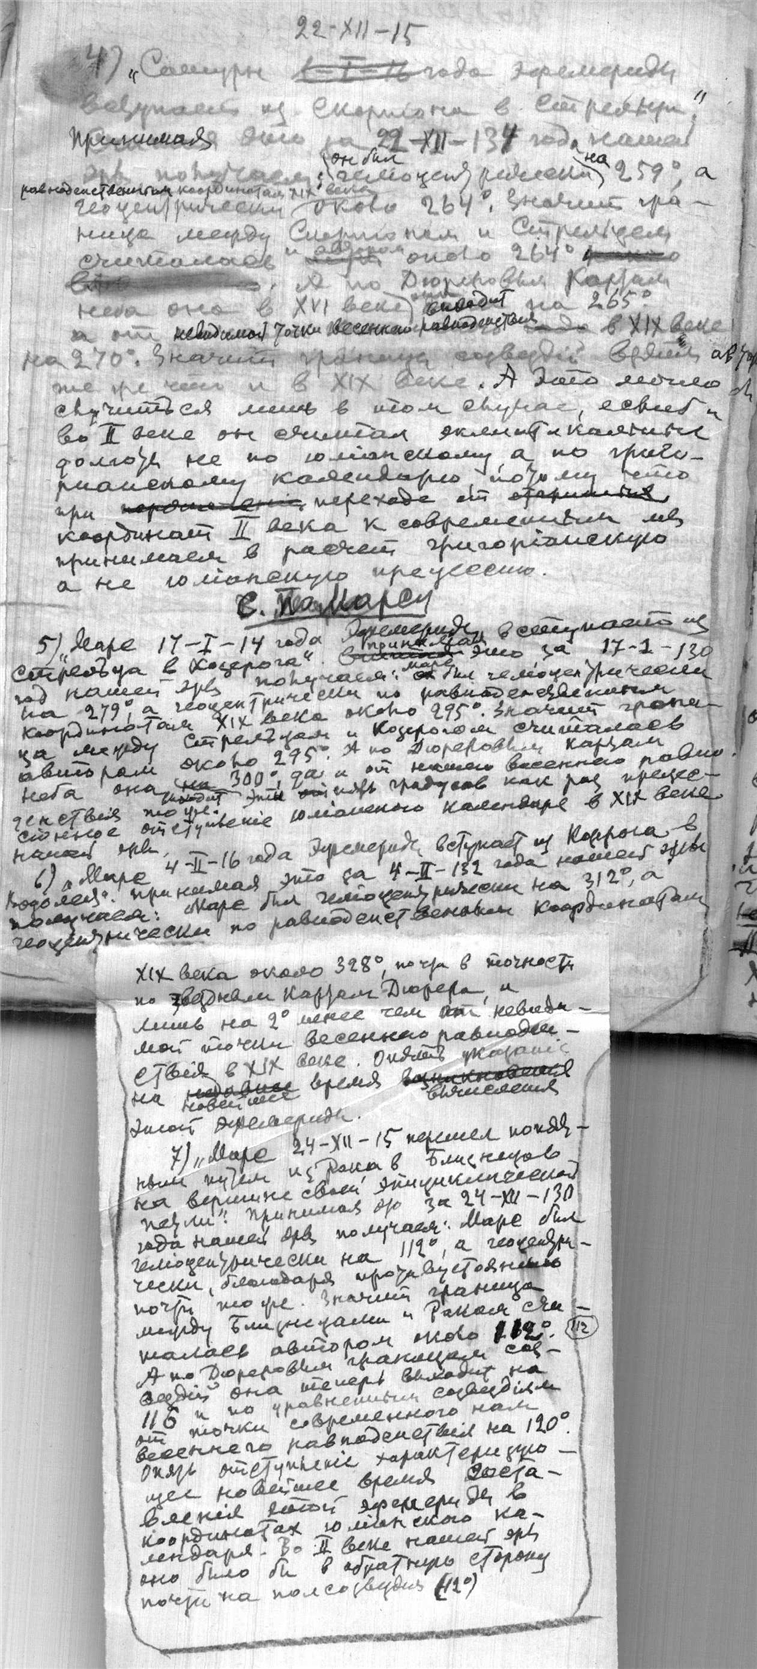 22-XII-15
4) „Сатурн 1-I-16 года эфемериды
вступает из Скорпиона в Стрельца“
Принимая это за 22-XII-134 год нашей
эры получаем: он был гелиоцентрически на 259°, а
равноденственным координатам XIX века
геоцентрически около 264°. Значит гра-
ница между Скорпионом и Стрельцем
считалась и автором около 264°
. А по Дюреровым Картам
неба она в XVI веке выходит на 265°
а от невидимой точки весеннего равноденствия в XIX веке
на 270°. Значит границу созвездий
же где она и в XIX веке. А это могло
случиться лишь в том случае, если б и
во II веке он считал эклиптикальные
долготы не по юлианскому а по григо-
рианскому календарю, потому что
при переходе от
координат II века к современным мы
принимаем в расчет григоріанскую
а не юліанскую прецессию.
С. По Марсу
5) „Марс 17-I-14 года Эфемериды вступает из
Стрельца в Козерога“. Принимая это за 17-I-130
год нашей эры получаем: Марс был гелиоцентрически
на 279° а геоцентрически по равноденственным
координатам XIX века около 295°. Значит грани-
ца между Стрельцом и Козерогом считалась
автором около 295°. А по Дюреровым картам
неба она на 300°, да и от нашего весеннего равно-
денствия тоже. Эти пять градусов как раз прецес-
сионное отступленіе юліанского календаря в XIX веке
нашей эры.
6) „Марс 4-II-16 года Эфемериды вступает из Козерога в
Водолея“. Принимая это за 4-II-132 года нашей эры
получаем: Марс был гелиоцентрически на 312°, а
геоцентрически по равноденственным координатам
XIX века около 328°, почти в точности
по звездным Картам Дюрера, и
лишь на 2° менее чем от невиди-
мой точки весеннего равноден-
ствія в XIX веке. Опять указаніе
на новейшее время вычисления
этой эфемериды.
7) „Марс 24-XII-15 перешел попят-
ным путем из Рака в Близнецов
на вершине своей эпициклической
петли“. Принимая это за 24-XII-130
года нашей эры получаем: Марс был
гелиоцентрически на 112°, а геоцентри-
чески, благодаря противустоянию
почти тоже. Значит граница
между Близнецами и Раком счи-
талась автором около 112°. 112
А по Дюреровым границам соз-
вездий она теперь выходит на
116 и по уравненным созвездіям
от точки современного нам
весеннего равноденствія на 120°.
Опять отступленіе характеризую-
щее новейшее время соста-
вленія этой эфемериды в
координатах юліанского ка-
лендаря. Во II веке нашей эры
оно было бы в обратную сторону
почти на полсозвездия (12°)